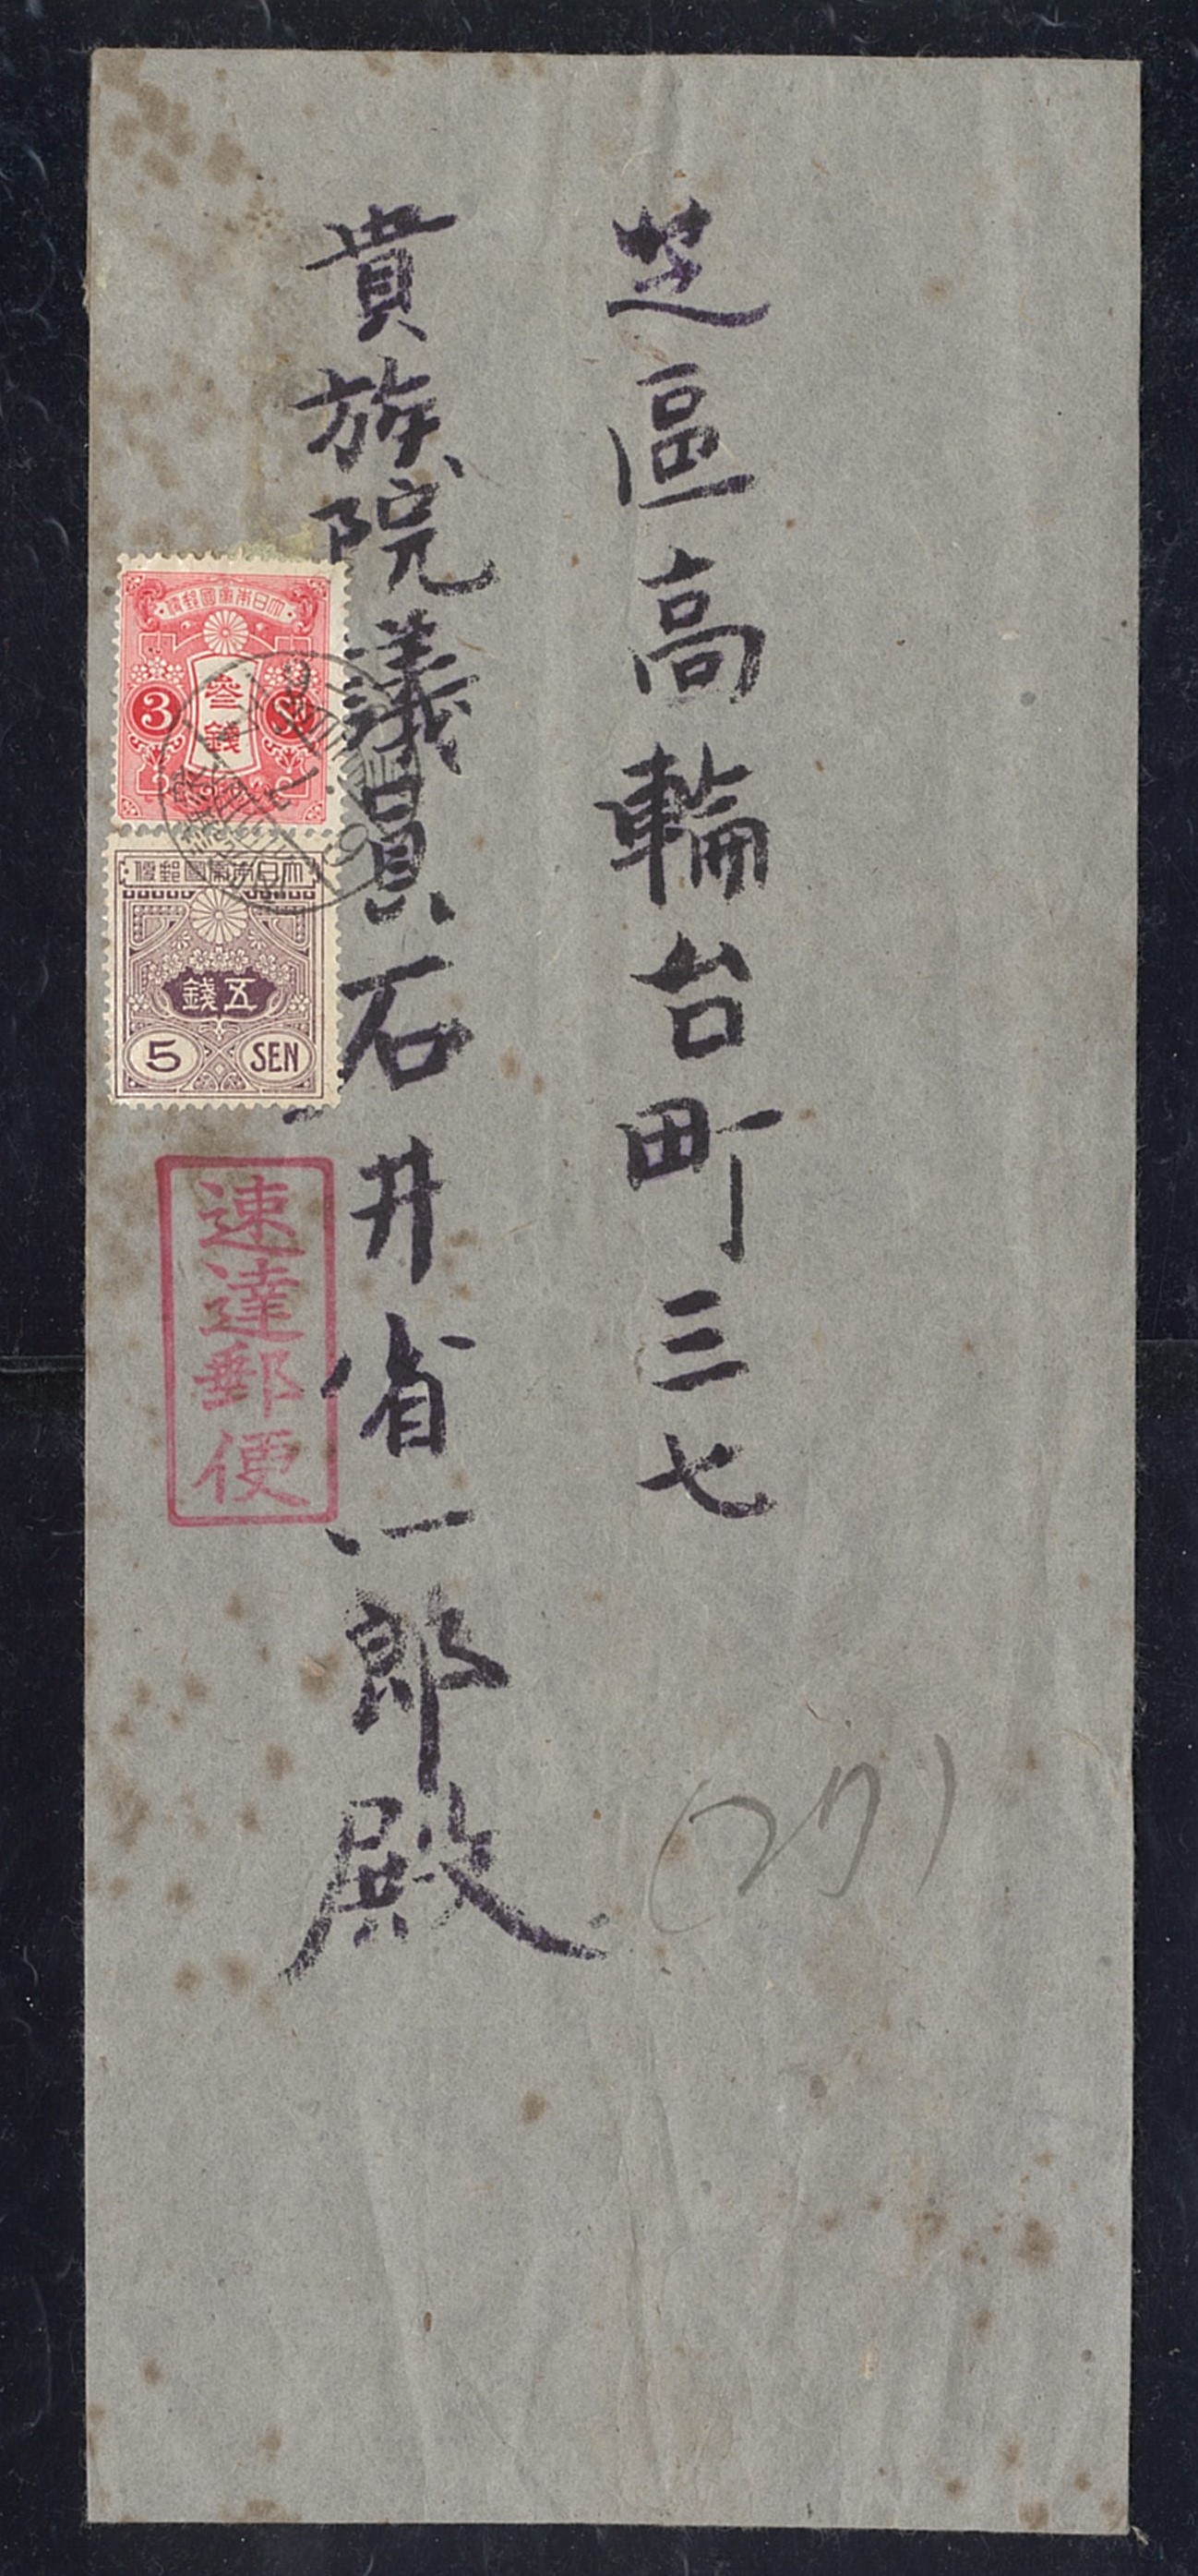 芝區高輪台町三七
貴族院議員石井省一郎殿
大日本帝國郵便
3
参錢
S
大日本帝國郵便
五錢
5 SEN
速達郵便
(27)